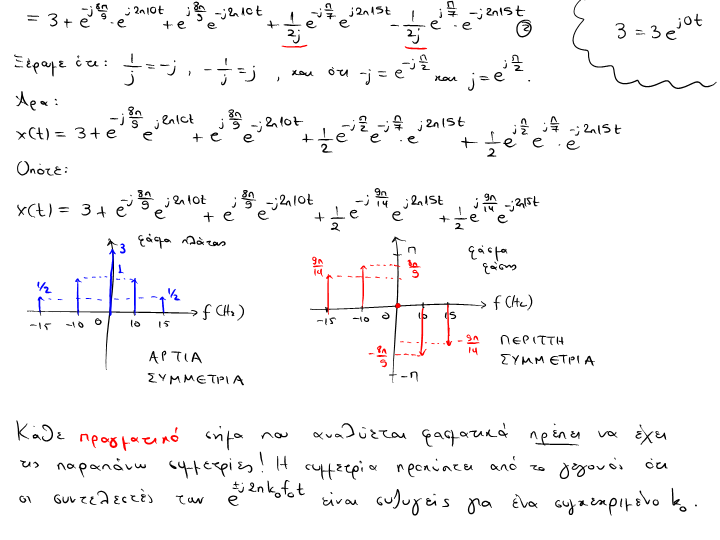 = 3 + e^{-j8π/9} · e^{j2π10t} + e^{j8π/9} e^{-j2π10t} + 1/2j e^{-jπ/7} e^{j2π15t} - 1/2j e^{jπ/7} · e^{-j2π15t} ②
3 = 3e^{j0t}
Ξέραμε ότι: 1/j = -j , -1/j = j , και ότι -j = e^{-jπ/2} και j = e^{jπ/2}.
Άρα:
x(t) = 3 + e^{-j8π/9} e^{j2π10t} + e^{j8π/9} e^{-j2π10t} + 1/2 e^{-jπ/2} e^{-jπ/7} · e^{j2π15t} + 1/2 e^{jπ/2} e^{jπ/7} · e^{-j2π15t}
Οπότε:
x(t) = 3 + e^{-j8π/9} e^{j2π10t} + e^{j8π/9} e^{-j2π10t} + 1/2 e^{-j9π/14} e^{j2π15t} + 1/2 e^{j9π/14} e^{-j2π15t}
φάσμα πλάτους
3
1
1/2 1/2
-15 -10 0 10 15 f(Hz)
ΑΡΤΙΑ
ΣΥΜΜΕΤΡΙΑ
π
φάσμα
φάσης
9π/14 8π/9
-15 -10 0 10 15 f(Hz)
-8π/9 -9π/14
-π
ΠΕΡΙΤΤΗ
ΣΥΜΜΕΤΡΙΑ
Κάθε πραγματικό σήμα που αναλύεται φασματικά πρέπει να έχει
τις παραπάνω συμμετρίες! Η συμμετρία προκύπτει από το γεγονός ότι
οι συντελεστές των e^{±j2πk₀f₀t} είναι συζυγείς για ένα συγκεκριμένο k₀.